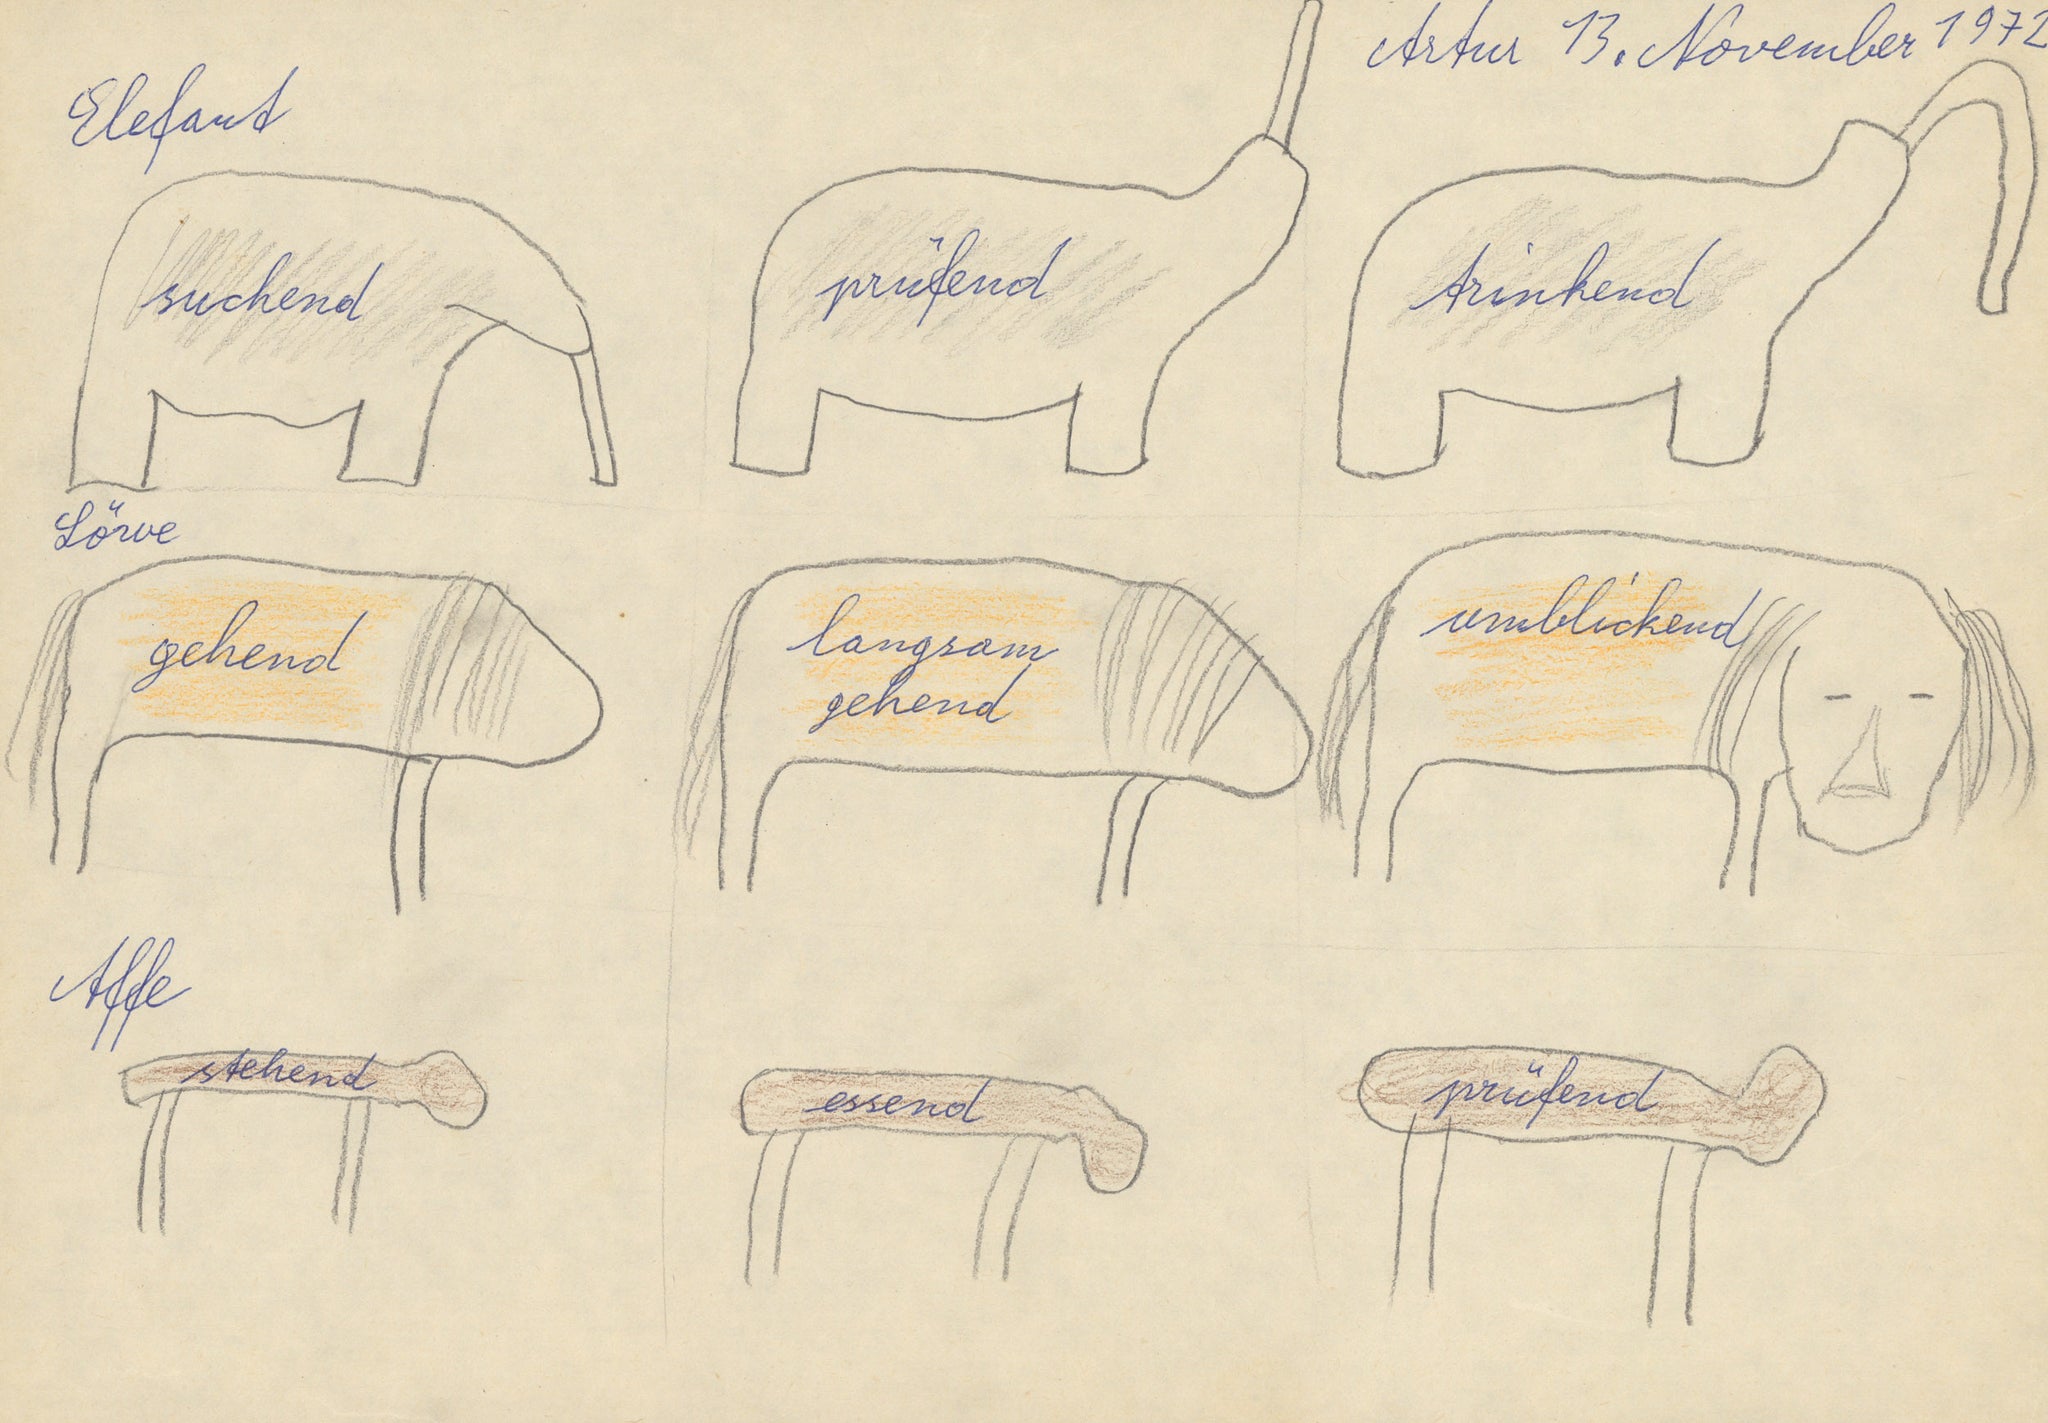 Artur 13. November 1972
Elefant
suchend
prüfend
trinkend
Löwe
gehend
langsam
gehend
umblickend
Affe
stehend
essend
prüfend